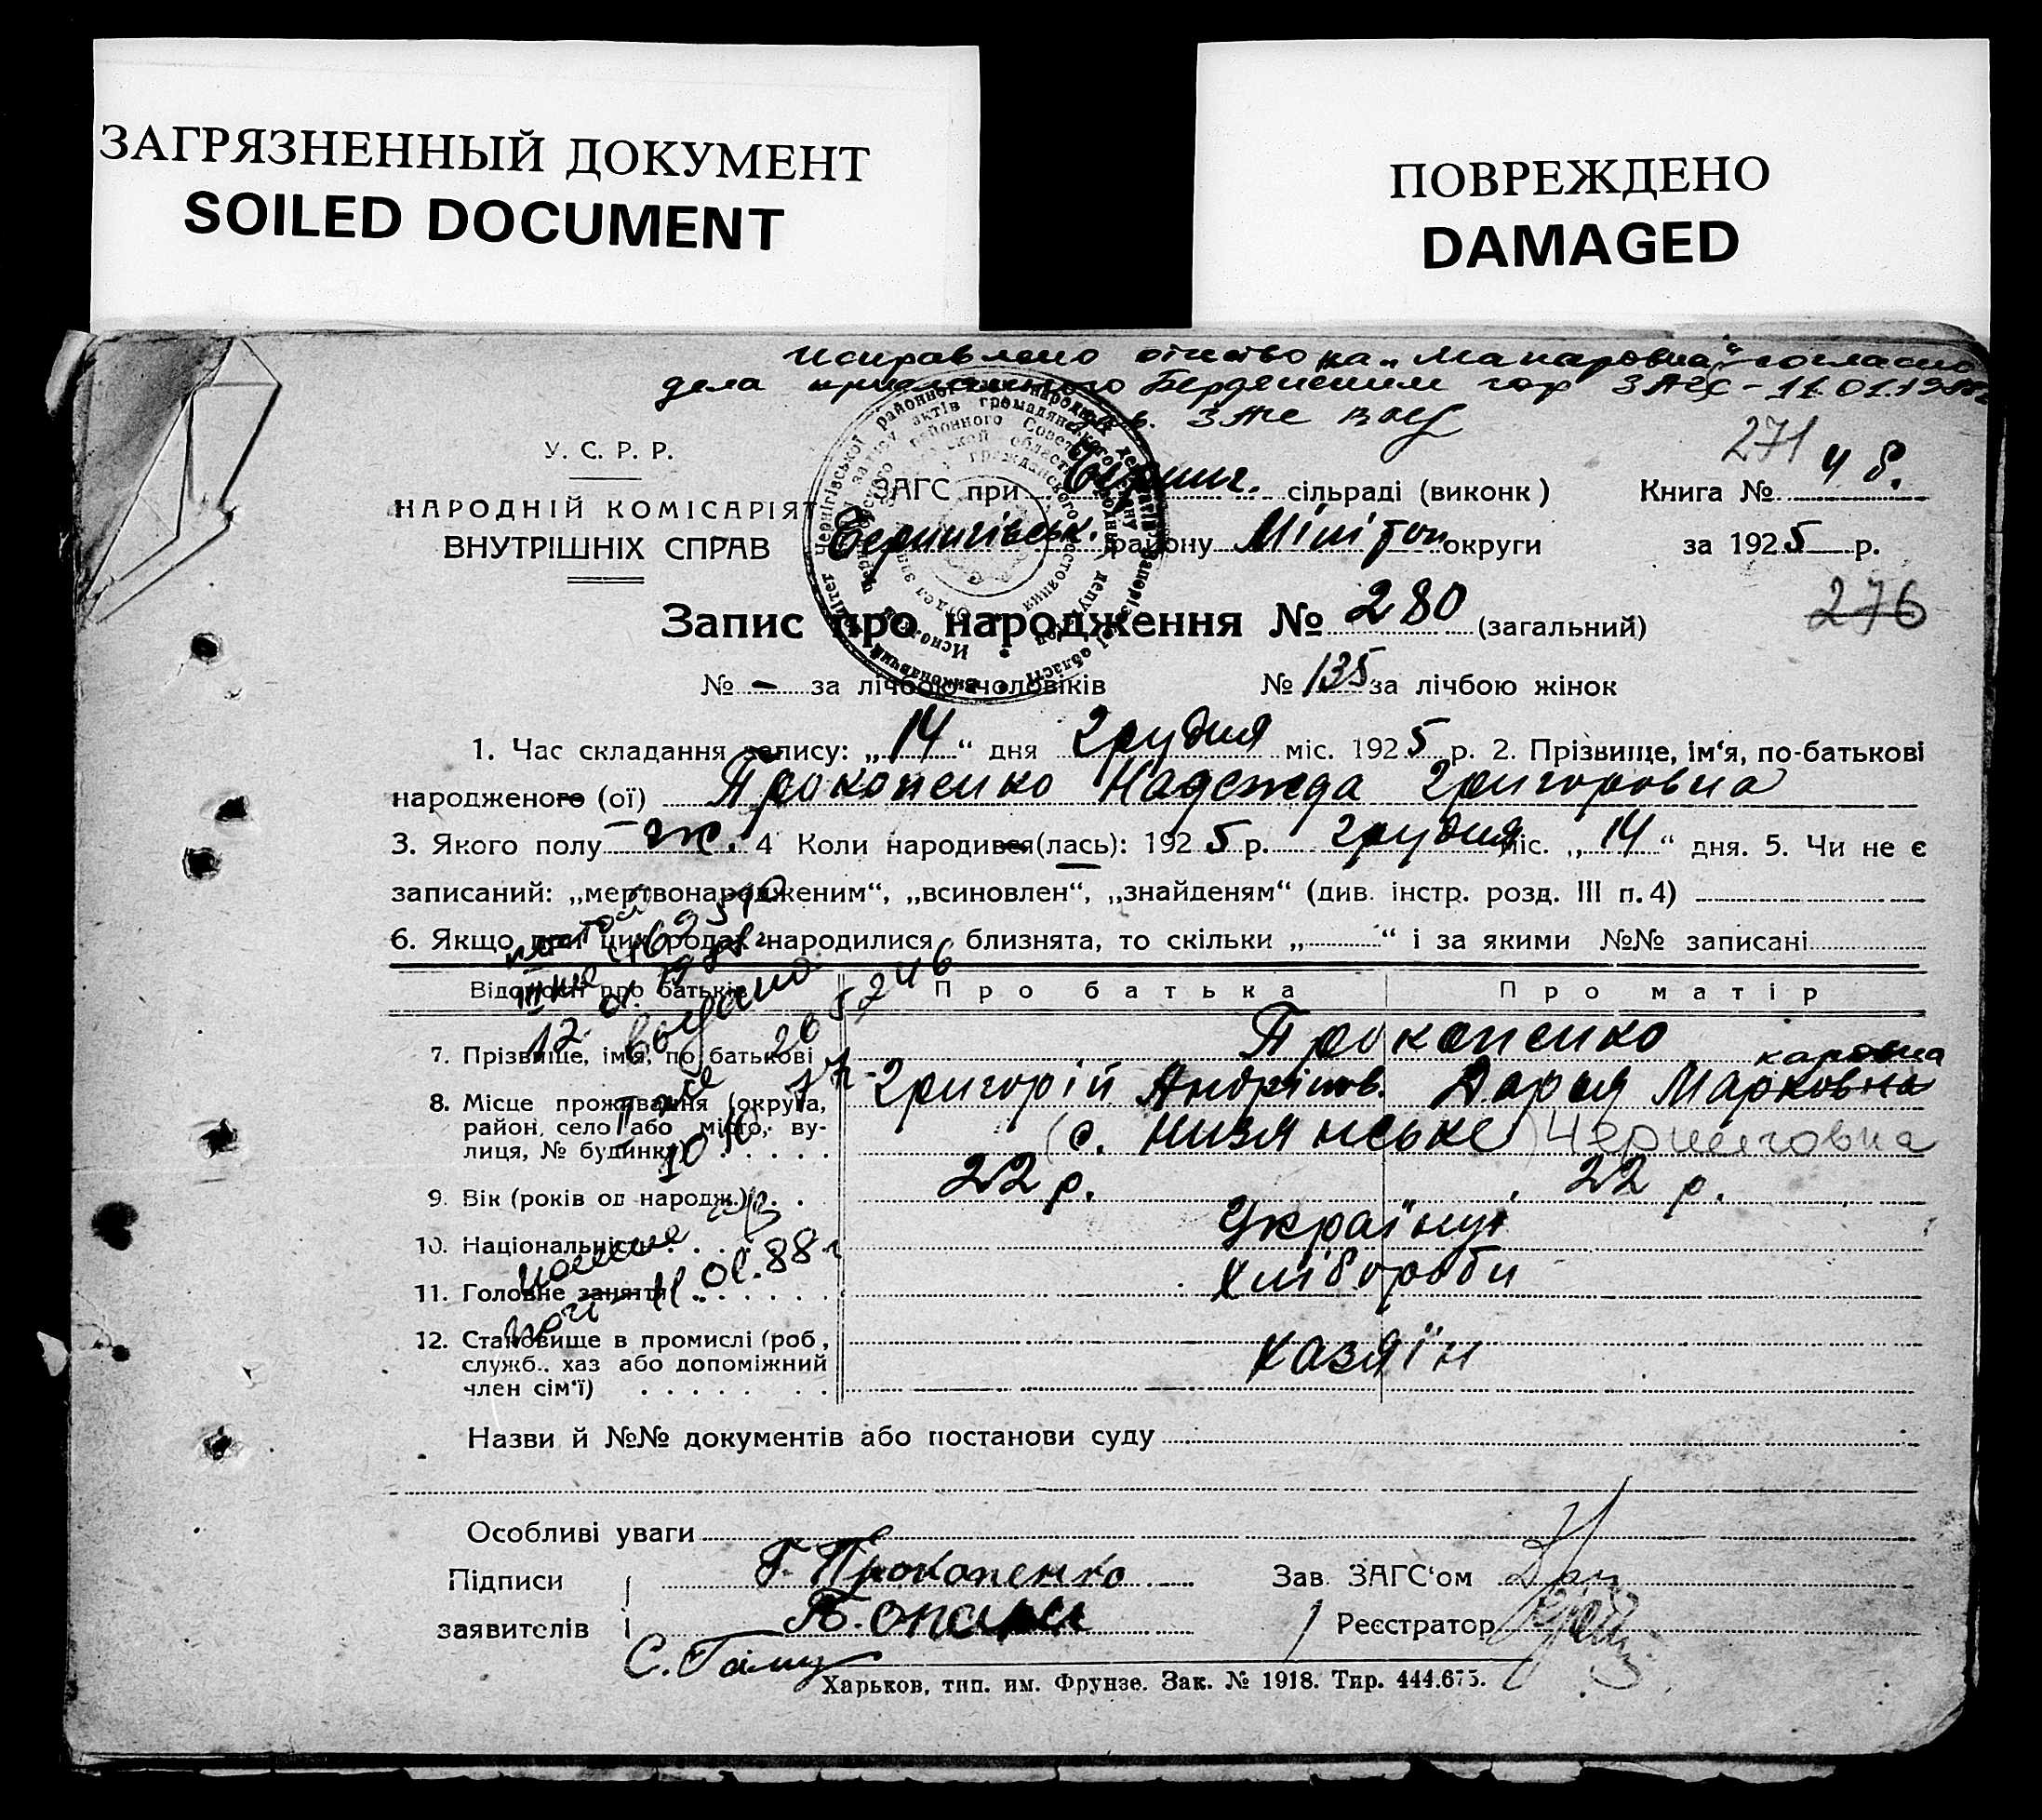 ЗАГРЯЗНЕННЫЙ ДОКУМЕНТ
SOILED DOCUMENT
ПОВРЕЖДЕНО
DAMAGED
Исправлено отчество на „Макаровна" согласно
дела присланного Бердянским гор ЗАГС - 11.01.19
271
У. С. Р. Р.
НАРОДНІЙ КОМІСАРІЯТ
ВНУТРІШНІХ СПРАВ
ЗАГС при Черниг. сільраді (виконк) Книга № 48.
Чернигівськ. району Меліtоп округи за 1925 р.
Запис про народження № 280 (загальний) 276
№ - за лічбою чоловіків № 135 за лічбою жінок
1. Час складання запису: „14" дня Грудня міс. 1925 р. 2. Прізвище, ім'я, по-батькові
народженого (ої) Прокопенко Надежда Григоровна
3. Якого полу ж. 4 Коли народився(лась): 1925 р. Грудня міс. „14" дня. 5. Чи не є
записаний: „мертвонародженим", „всиновлен", „знайденям" (див. інстр. розд. III п. 4)
6. Якщо при цих родах народилися близнята, то скільки „ " і за якими №№ записані
Відомості про батьків Про батька Про матір
7. Прізвище, ім'я, по батькові Прокопенко
Григорій Андріїв. Дарья Марковна каровна
8. Місце проживання (округа,
район, село або місто, вулиця, № будинку) (с. Низянське) Черниговка
9. Вік (років од народж.) 22 р. 22 р.
10. Національність Українці
11. Головне заняття Хлібороби
12. Становище в промислі (роб.,
служб., хаз або допоміжний
член сім'ї) хазяїн
11 01.88 г
Назви й №№ документів або постанови суду
Особливі уваги
Підписи Г. Прокопенко Зав. ЗАГС'ом
заявителів Реєстратор
Харьков, тип. им. Фрунзе. Зак. № 1918. Тир. 444.675.